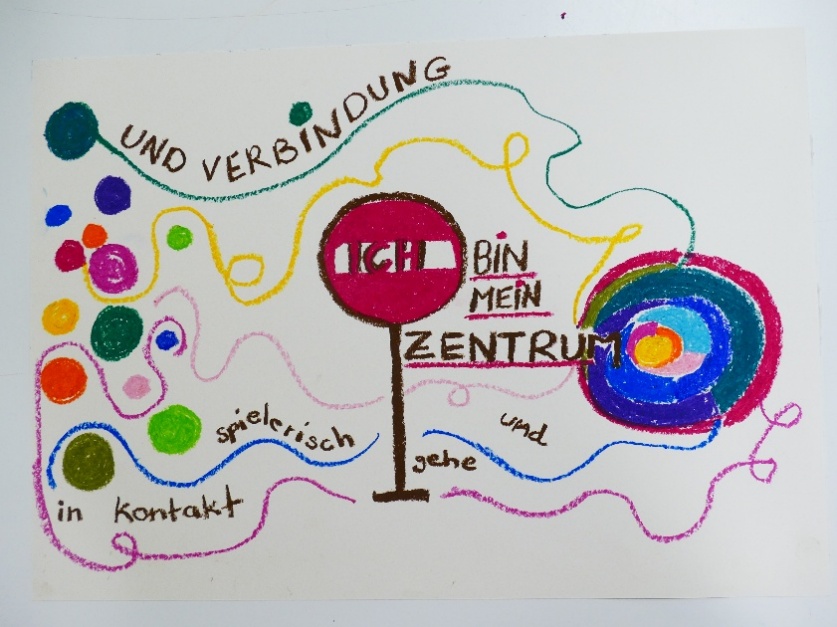 UND VERBINDUNG
ICH BIN
MEIN
ZENTRUM
und
gehe
spielerisch
in Kontakt